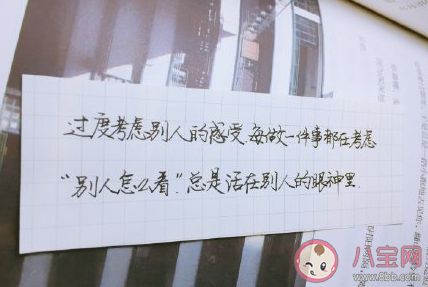 过度考虑别人的感受,每做一件事都在考虑
“别人怎么看”.总是活在别人的眼神里.
八宝网
www.8bb.com